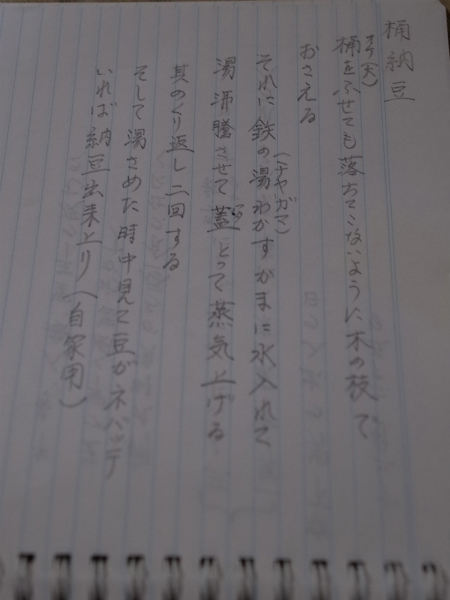 桶納豆
オケ(大)
桶をふせても落ちてこないように木の枝で
おさえる
(チャガマ)
それに鉄の湯わかすがまに水入れて
湯沸騰させて蓋とって蒸気上げる
其のくり返し二回する
そして湯さめた時中見て豆がネバッテ
いれば納豆出来上り(自家用)